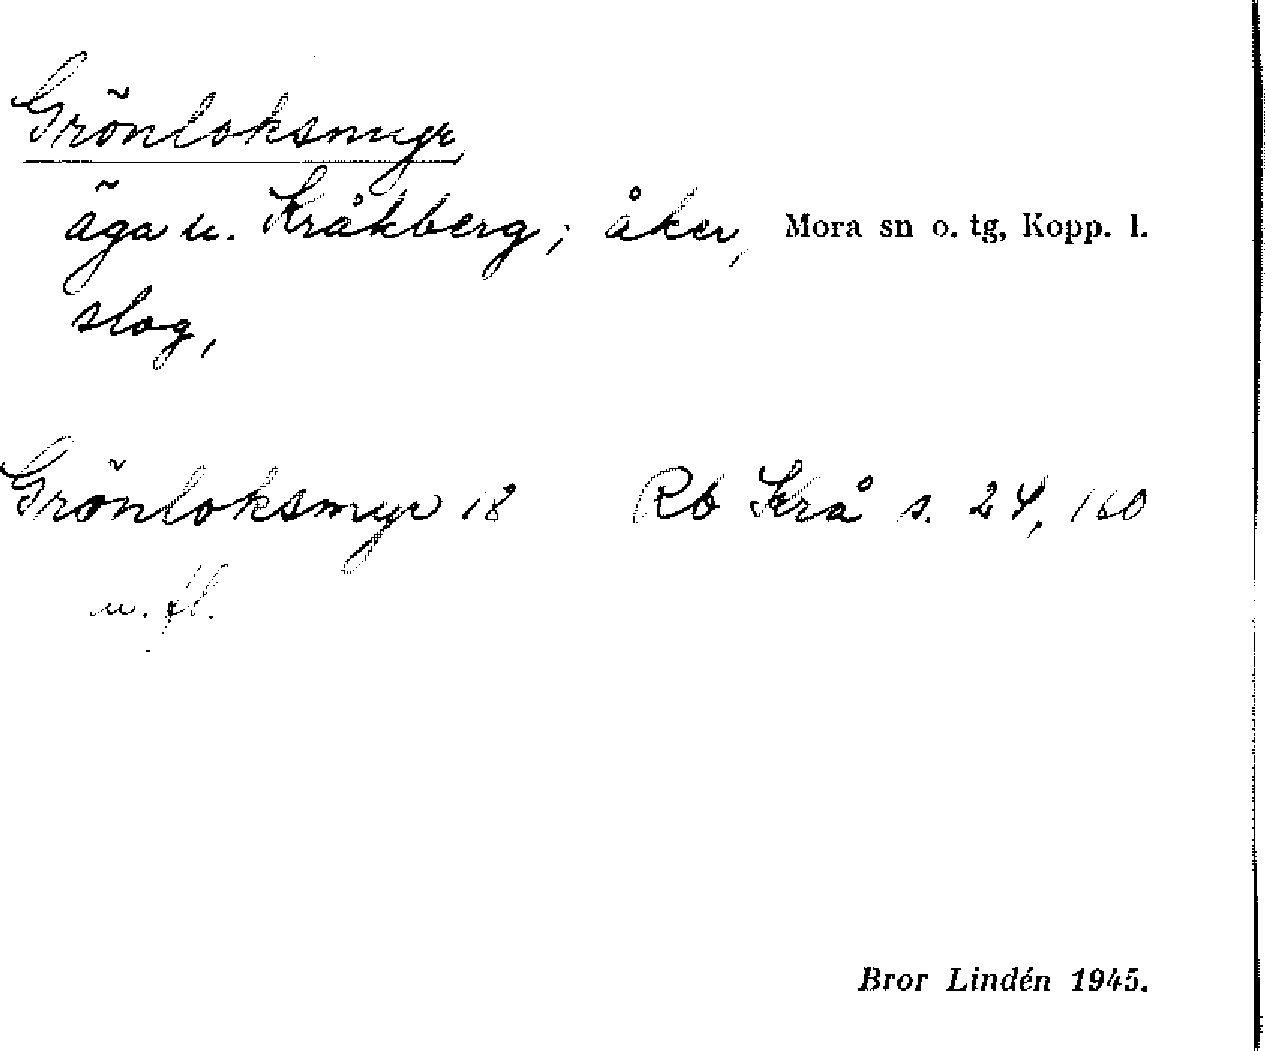 Grönloksmyr,
äga u. Kråkberg; åker, Mora sn o. tg, Kopp. l.
slog,
Grönloksmyr 18 Rb Krå s. 24, 160
m. fl.
Bror Lindén 1945.